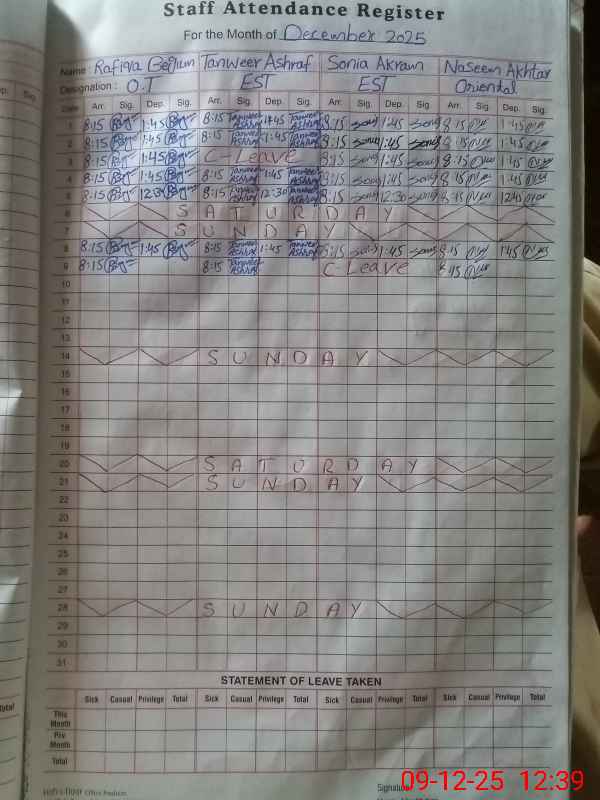 Staff Attendance Register
For the Month of December 2025
Name : Rafiqa Begum Tanweer Ashraf Sonia Akram Naseem Akhtar
Designation : O.T EST EST Oriental
Date Arr. Sig. Dep. Sig. Arr. Sig. Dep. Sig. Arr. Sig. Dep. Sig. Arr. Sig. Dep. Sig.
1 8:15 1:45 8:15 Tanweer Ashraf 1:45 Tanweer Ashraf 8:15 Sonia 1:45 Sonia 8:15 1:45
2 8:15 1:45 8:15 Tanweer Ashraf 1:45 Tanweer Ashraf 8:15 Sonia 1:45 Sonia 8:15 1:45
3 8:15 1:45 C-Leave 8:15 Sonia 1:45 Sonia 8:15 1:45
4 8:15 1:45 8:15 Tanweer Ashraf 1:45 Tanweer Ashraf 8:15 Sonia 1:45 Sonia 8:15 1:45
5 8:15 12:30 8:15 Tanweer Ashraf 12:30 Tanweer Ashraf 8:15 Sonia 12:30 Sonia 8:15 12:45
6 SATURDAY
7 SUNDAY
8 8:15 1:45 8:15 Tanweer Ashraf 1:45 Tanweer Ashraf 8:15 Sonia 1:45 Sonia 8:15 1:45
9 8:15 8:15 Tanweer Ashraf C-Leave 8:15
10
11
12
13
14 SUNDAY
15
16
17
18
19
20 SATURDAY
21 SUNDAY
22
23
24
25
26
27
28 SUNDAY
29
30
31
STATEMENT OF LEAVE TAKEN
Sick Casual Privilege Total Sick Casual Privilege Total Sick Casual Privilege Total Sick Casual Privilege Total
This Month
Prv Month
Total
Signature
09-12-25 12:39